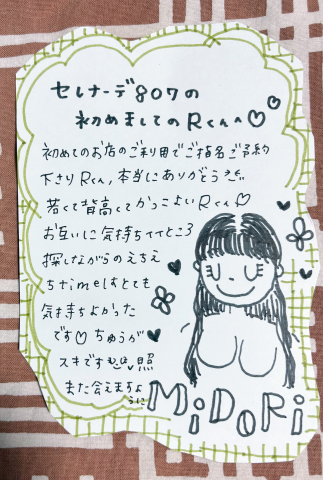 セレナーデ807の
初めましてのRくんへ♡♡
初めてのお店のご利用でご指名ご予約
下さりRくん,本当にありがとう
若くて背高くてかっこよいRくん♡
お互いに気持ちイイところ
探しながらのえちえ
ちtimeはとても
気持ちよかった
です♡ちゅうが
スキです 照
また会えますよ
うに
MiDORi